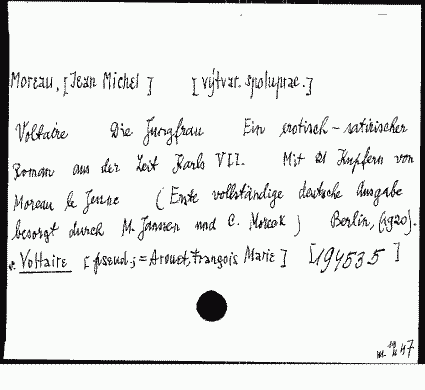 Moreau, [Jean Michel] [výtvar. spoluprac.]
Voltaire Die Jungfrau Ein erotisch-satirischer
Roman aus der Zeit Karls VII. Mit 21 Kupfern von
Moreau le Jeune (Erste vollständige deutsche Ausgabe
besorgt durch M. Janssen und C. Moreck) Berlin, (1920).
v. Voltaire [pseud.; = Arouet, François Marie] [194535]
47